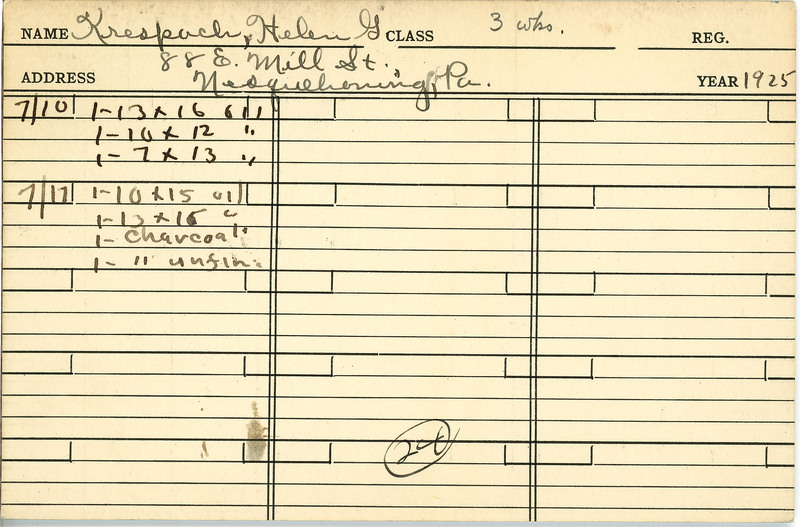 NAME Krespach, Helen G CLASS 3 wks. REG.
88 E. Mill St.
ADDRESS Nesquehoning, Pa. YEAR 1925
7/10 1-13 x 16 oil
1-10 x 12 "
1- 7 x 13 "
7/17 1-10 x 15 oil
1-13 x 16 "
1- charcoal
1- " unfin.
24